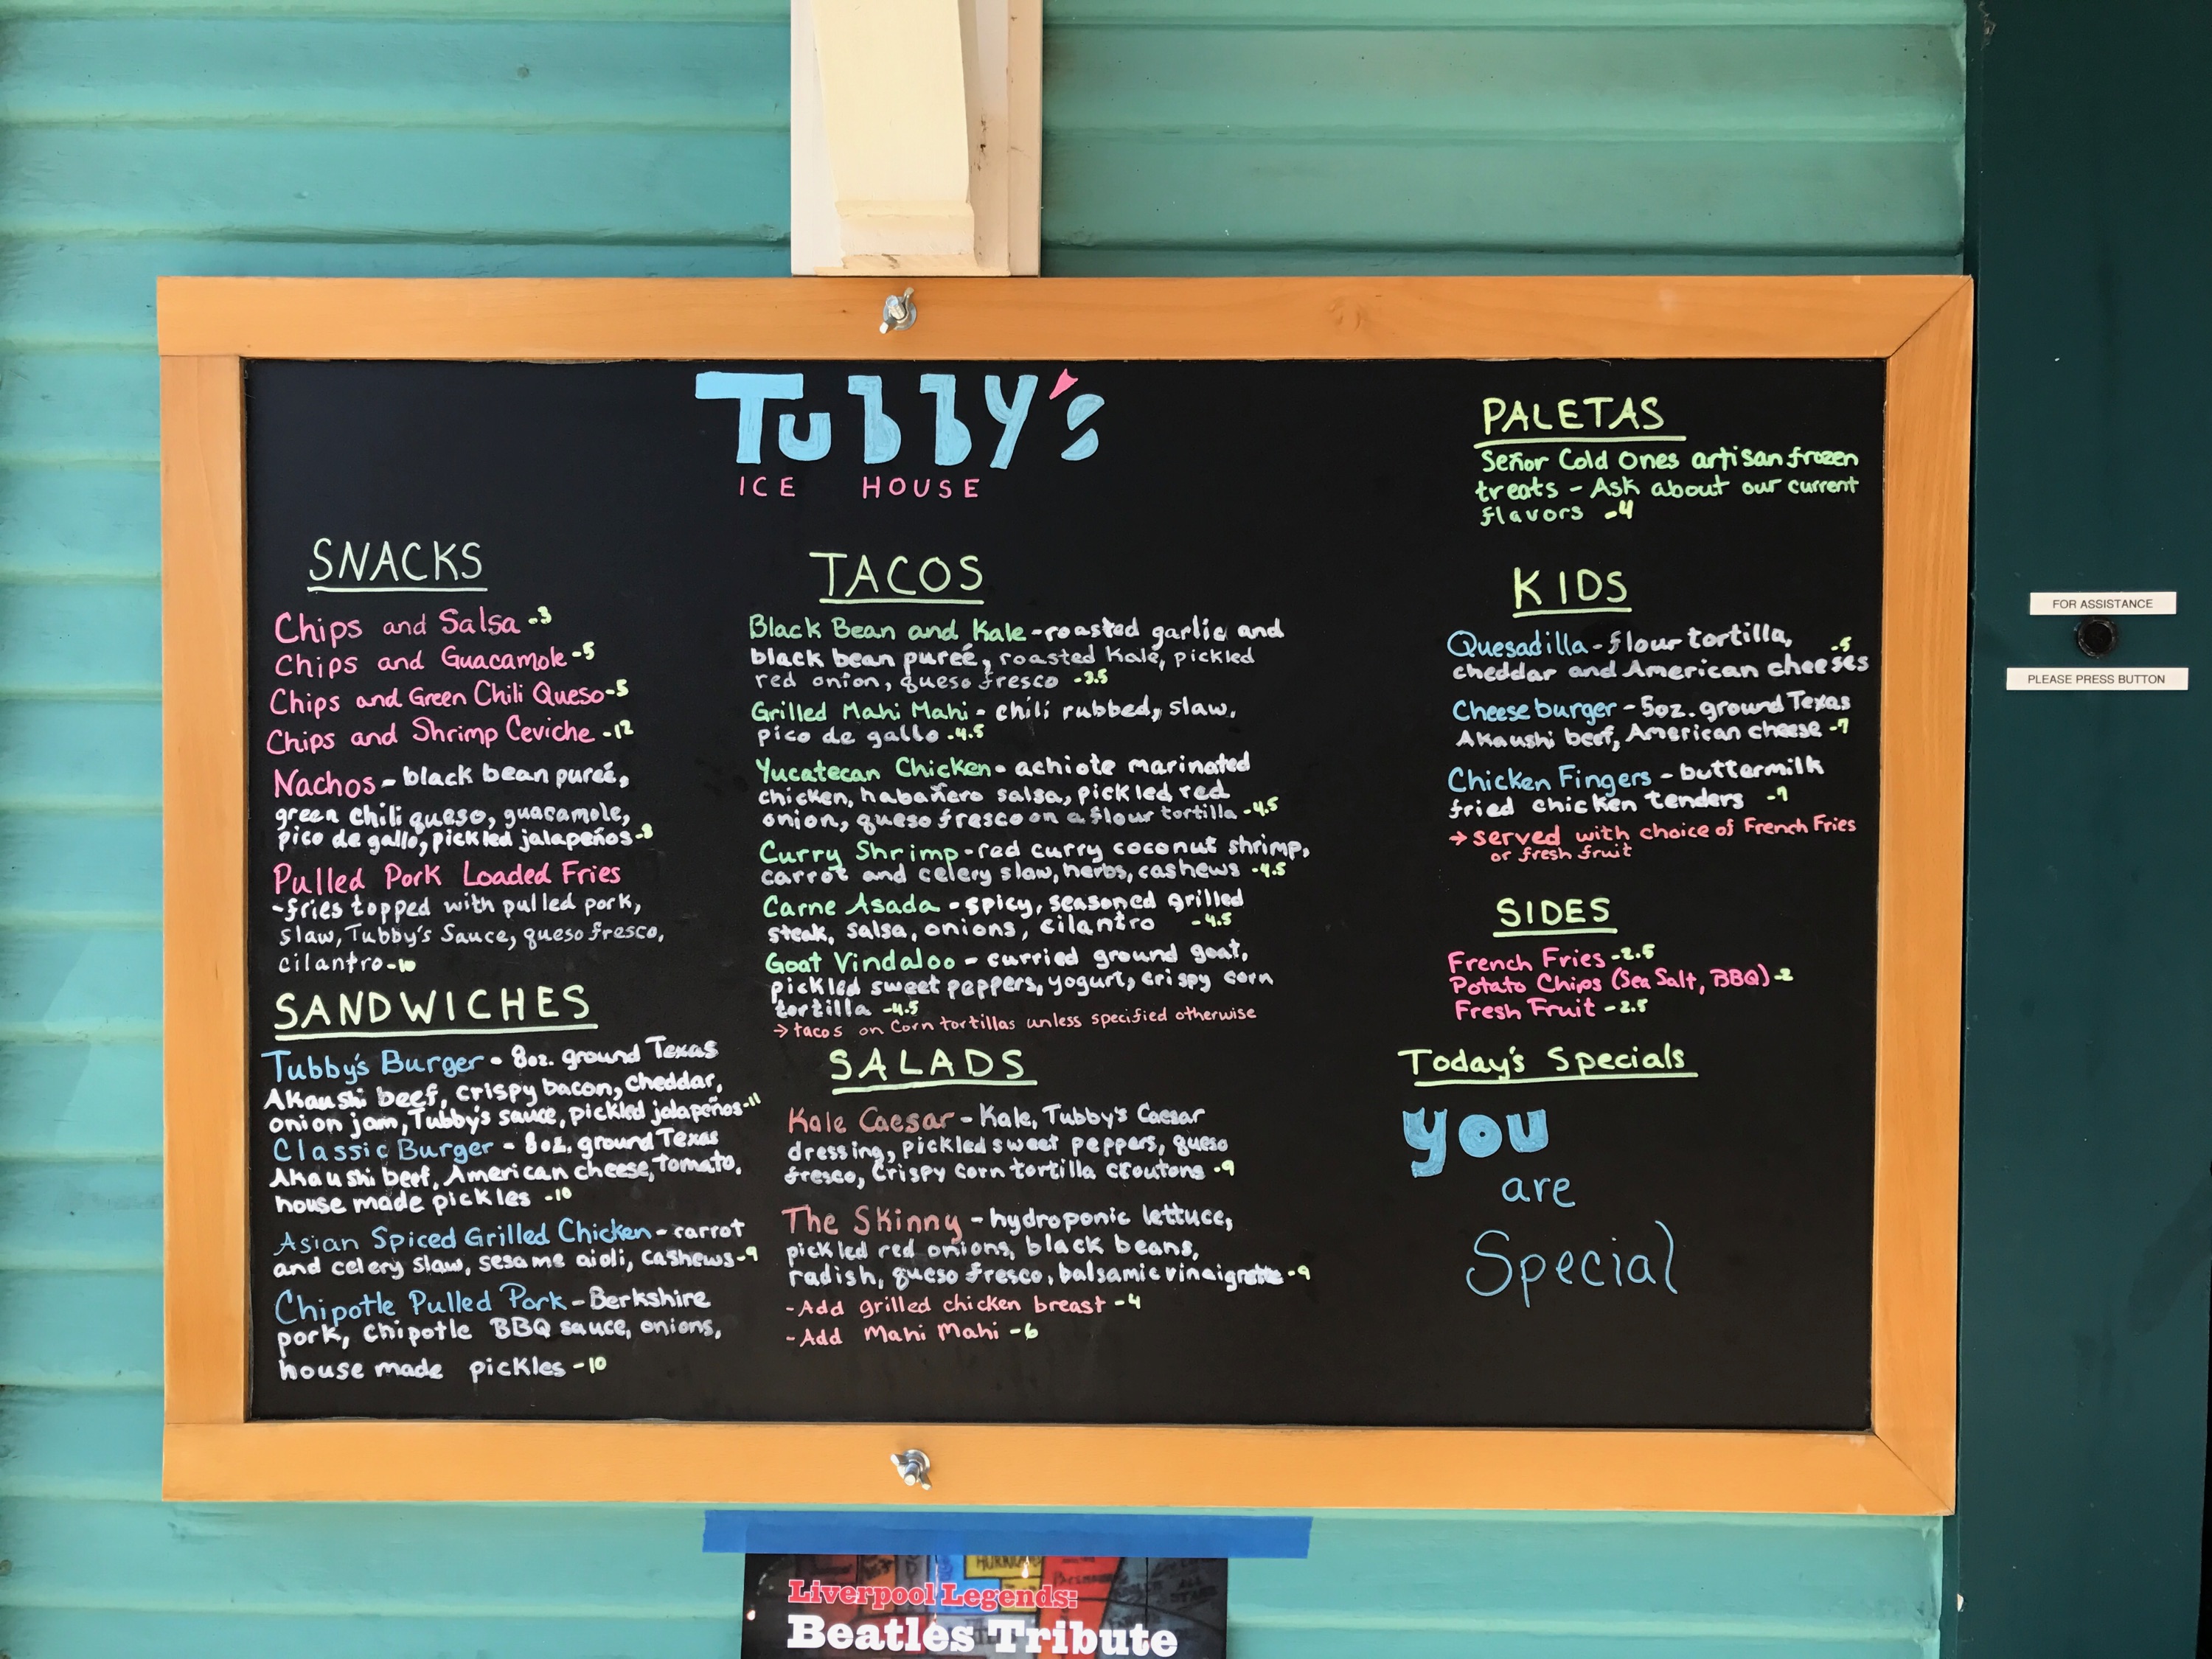 Tubby's
ICE HOUSE
SNACKS
Chips and Salsa -3
Chips and Guacamole -5
Chips and Green Chili Queso -5
Chips and Shrimp Ceviche -12
Nachos - black bean pureé,
green chili queso, guacamole,
pico de gallo, pickled jalapeños -8
Pulled Pork Loaded Fries
-fries topped with pulled pork,
slaw, Tubby's Sauce, queso fresco,
cilantro -10
SANDWICHES
Tubby's Burger - 8oz. ground Texas
Akaushi beef, crispy bacon, cheddar,
onion jam, Tubby's sauce, pickled jalapeños -11
Classic Burger - 8oz. ground Texas
Akaushi beef, American cheese, tomato,
house made pickles -10
Asian Spiced Grilled Chicken - carrot
and celery slaw, sesame aioli, cashews -9
Chipotle Pulled Pork - Berkshire
pork, chipotle BBQ sauce, onions,
house made pickles -10
TACOS
Black Bean and Kale - roasted garlic and
black bean pureé, roasted Kale, pickled
red onion, queso fresco -3.5
Grilled Mahi Mahi - chili rubbed, slaw,
pico de gallo -4.5
Yucatecan Chicken - achiote marinated
chicken, habañero salsa, pickled red
onion, queso fresco on a flour tortilla -4.5
Curry Shrimp - red curry coconut shrimp,
carrot and celery slaw, herbs, cashews -4.5
Carne Asada - spicy, seasoned grilled
steak, salsa, onions, cilantro -4.5
Goat Vindaloo - curried ground goat,
pickled sweet peppers, yogurt, crispy corn
tortilla -4.5
→ tacos on Corn tortillas unless specified otherwise
SALADS
Kale Caesar - Kale, Tubby's Caesar
dressing, pickled sweet peppers, queso
fresco, Crispy corn tortilla croutons -9
The Skinny - hydroponic lettuce,
pickled red onions, black beans,
radish, queso fresco, balsamic vinaigrette -9
- Add grilled chicken breast -4
- Add Mahi Mahi -6
PALETAS
Señor Cold Ones artisan frozen
treats - Ask about our current
flavors -4
KIDS
Quesadilla - flour tortilla,
cheddar and American cheeses -5
Cheeseburger - 5oz. ground Texas
Akaushi beef, American cheese -7
Chicken Fingers - buttermilk
fried chicken tenders -7
→ served with choice of French Fries
or fresh fruit
SIDES
French Fries -2.5
Potato Chips (Sea Salt, BBQ) -2
Fresh Fruit -2.5
Today's Specials
you
are
Special
FOR ASSISTANCE
PLEASE PRESS BUTTON
Liverpool Legends:
Beatles Tribute